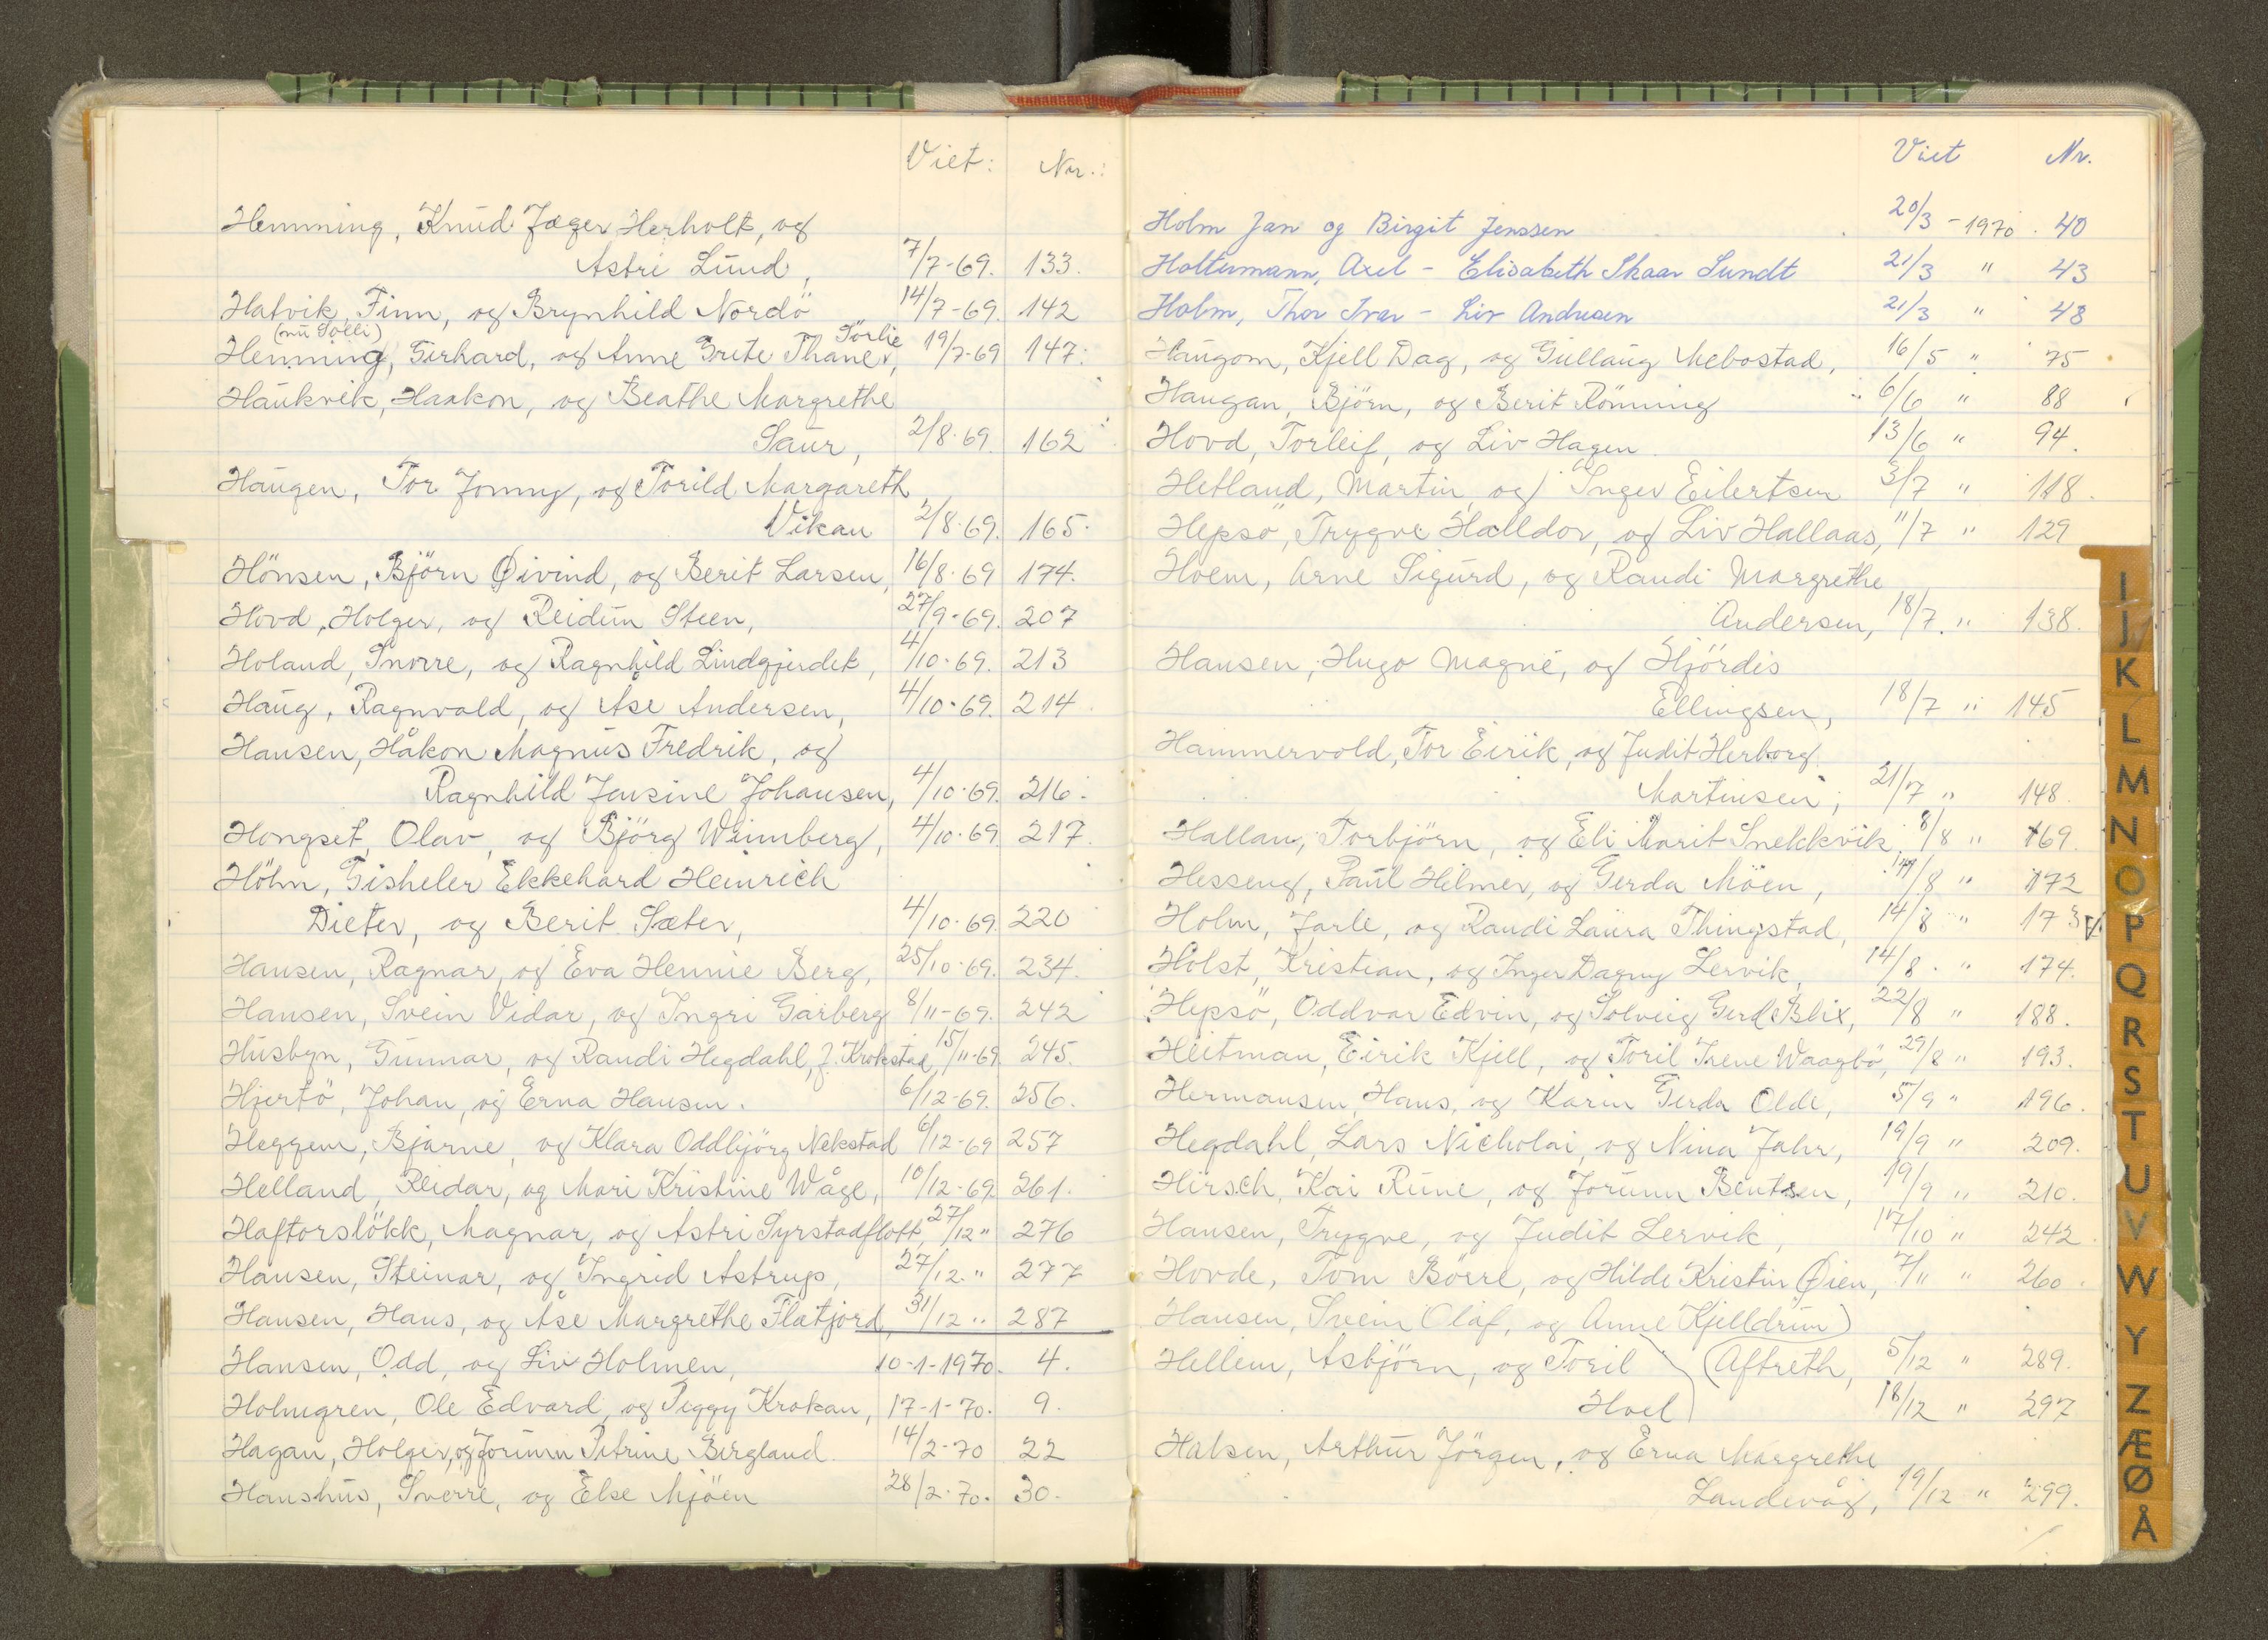 Viet: Nr.:
Hemming, Knud Jæger Herholt, og
Astri Lund, 7/7-69. 133.
Hatvik, Finn, og Brynhild Nordö 14/7-69. 142
(nu Solli) Sörlie
Henning, Gerhard, og Anne Grete Thane, 19/7-69 147.
Haukvik, Haakon, og Beathe Margrethe
Saur, 2/8-69. 162
Haugen, Tor Jonny, og Torild Margareth
Vikan 2/8-69. 165.
Hönsen, Björn Øivind, og Berit Larsen, 16/8-69 174.
Hovd, Holger, og Reidun Steen, 27/9-69. 207
Holand, Snorre, og Ragnhild Lindgjerdet, 4/10-69. 213
Haug, Ragnvald, og Åse Andersen, 4/10-69. 214
Hansen, Håkon Magnus Fredrik, og
Ragnhild Jensine Johansen, 4/10-69. 216.
Hongset, Olav, og Björg Weinberg, 4/10-69. 217.
Höhn, Gisheler Ekkehard Heinrich
Dieter, og Berit Sæter, 4/10-69. 220
Hansen, Ragnar, og Eva Hennie Berg, 25/10-69. 234.
Hansen, Svein Vidar, og Ingri Garberg 8/11-69. 242
Husbyn, Gunnar, og Randi Hegdahl, f. Krokstad, 15/11-69. 245.
Hjertö, Johan, og Erna Hansen. 6/12-69. 256.
Heggem, Bjarne, og Klara Oddbjörg Nekstad 6/12-69 257
Helland, Reidar, og Mari Kristine Våge, 10/12-69. 261.
Haftorslökk, Magnar, og Astri Syrstadfløtt, 27/12 " 276
Hansen, Steinar, og Ingrid Astrup, 27/12. " 277
Hansen, Hans, og Åse Margrethe Flatjord, 31/12 " 287
Hansen, Odd, og Liv Holmen, 10-1-1970. 4.
Holmgren, Ole Edvard, og Peggy Krokan, 17-1-70. 9.
Hagan, Holger, og Jorunn Petrine Bergland 14/2-70 22
Hanshus, Sverre, og Else Mjöen 28/2-70. 30.
Viet Nr.
Holm Jan og Birgit Jenssen 20/3-1970. 40
Holtermann, Axel - Elisabeth Skaar Sundt 21/3 " 43
Holm, Thor Ivar - Liv Andresen 21/3 " 48
Haugom, Kjell Dag, og Gullaug Mebostad, 16/5 " 75
Haugan, Björn, og Berit Rönning 6/6 " 88
Hovd, Torleif, og Liv Hagen 13/6 " 94.
Hetland, Martin, og Inger Eilertsen 3/7 " 118.
Hepsö, Trygve Halldor, og Liv Hallaas, 11/7 " 129
Hoem, Arne Sigurd, og Randi Margrethe
Andersen, 18/7. " 138.
Hansen, Hugo Magne, og Hjördis
Ellingsen, 18/7 " 145
Hammervold, Tor Eirik, og Judit Herborg
Martinsen, 21/7 " 148.
Hallan, Torbjörn, og Eli Marit Snekkvik, 8/8 " 169.
Hesseng, Paul Hilmer, og Gerda Möen, 14/8 " 172
Holm, Jarle, og Randi Laura Thingstad, 14/8 " 173
Holst, Kristian, og Inger Dagny Lervik, 14/8. " 174.
Hepsö, Oddvar Edvin, og Solveig Gerd Blix, 22/8 " 188.
Heitman, Eirik Kjell, og Toril Irene Waagbö, 29/8 " 193.
Hermansen, Hans, og Karin Gerda Olde, 5/9 " 196.
Hegdahl, Lars Nicholai, og Nina Jahr, 19/9 " 209.
Hirsch, Kai Rune, og Jorunn Bentsen, 19/9 " 210.
Hansen, Trygve, og Judit Lervik, 17/10 " 242.
Hovde, Tom Börre, og Hilde Kristin Øien, 7/11 " 260.
Hansen, Svein Olaf, og Anne Kjelldrun
Hellem, Asbjörn, og Toril (Aftreth, 5/12 " 289.
Hoel 18/12 " 297
Halsen, Arthur Jörgen, og Erna Margrethe
Landevåg, 19/12 " 299.
I
J
K
L
M
N
O
P
Q
R
S
T
U
V
W
Y
Z
Æ
Ø
Å